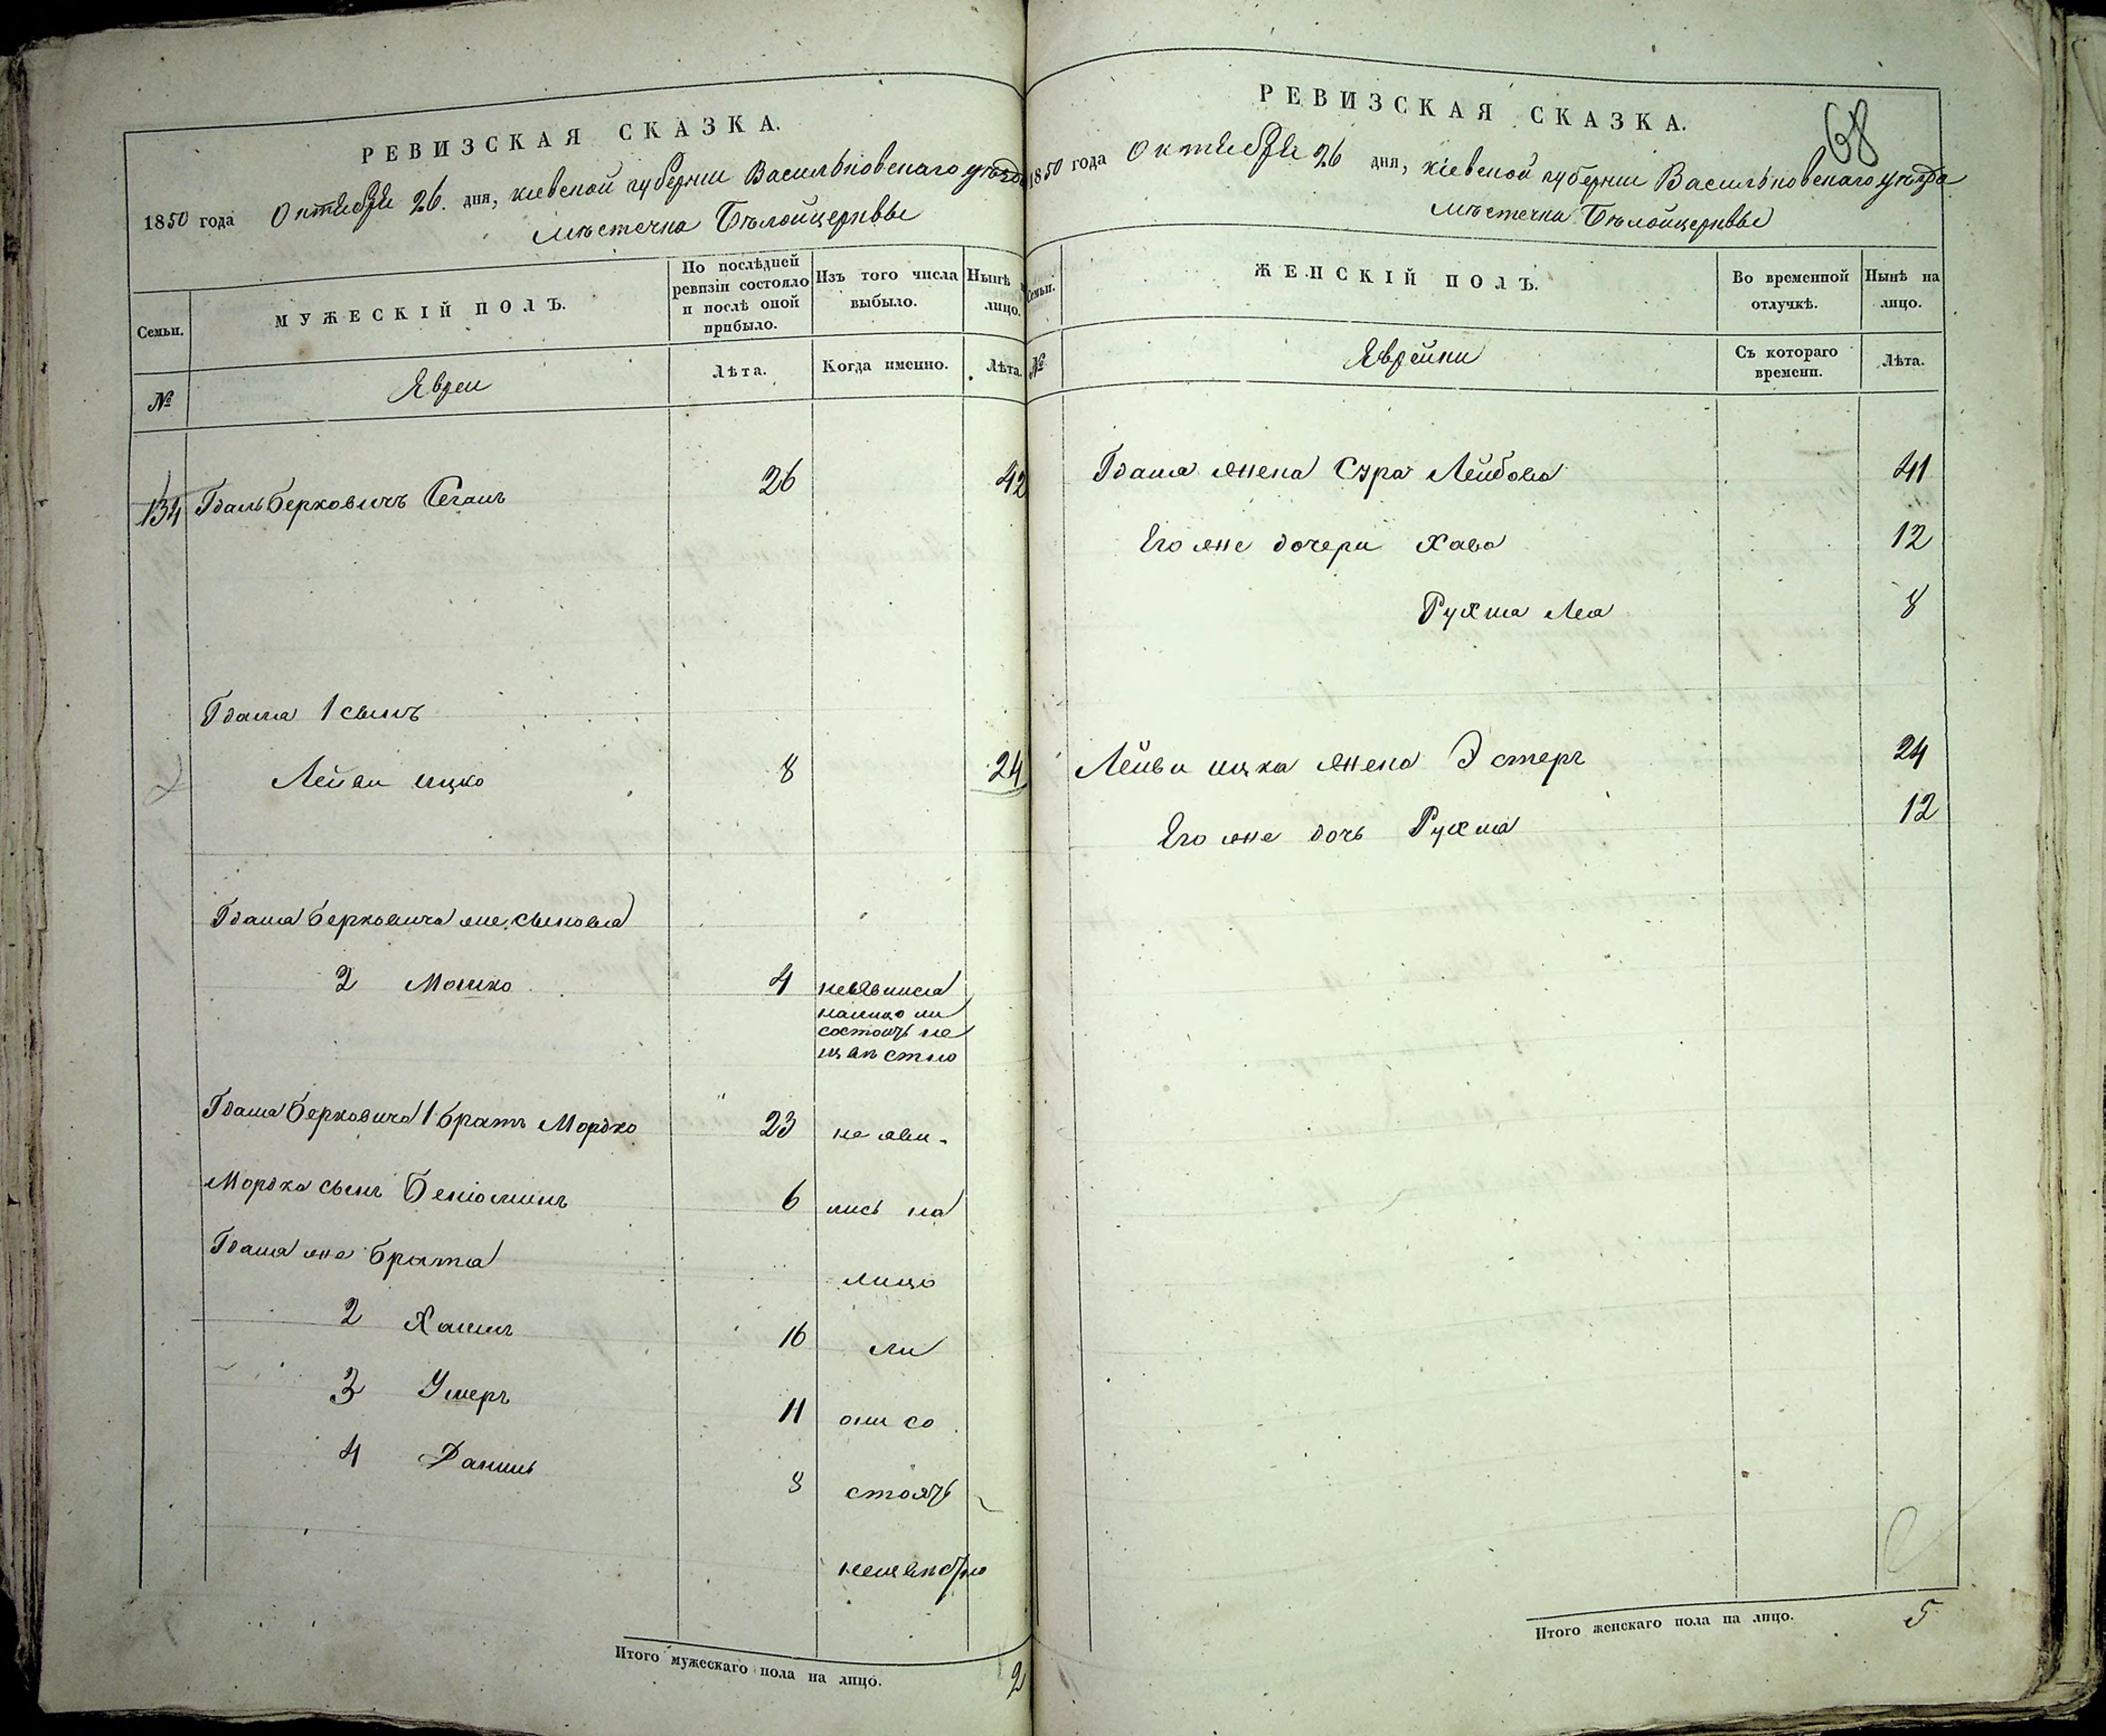 РЕВИЗСКАЯ СКАЗКА.
1850 года Октября 26. дня, кіевской губерніи Васильковскаго уѣзда
мѣстечка Бѣлойцерквы
Семьи.
МУЖЕСКІЙ ПОЛЪ.
По послѣдней ревизіи состояло и послѣ оной прибыло.
Изъ того числа выбыло.
Нынѣ на лицо.
№
Евреи
Лѣта.
Когда именно.
Лѣта.
134 Гдаль Берковичъ 26 42
Гдаля 1 сынъ
Лейви ицко 8 24
Гдаля Берковича же сыновья
2 Мошко 4 неявился
налицо ли
состоитъ не
извѣстно
Гдаля Берковича 1 братъ Мордко 23 не яви-
Мордка сынъ Беніоминъ 6 лись на
Гдаля же брата лицо
2 Хаимъ 16 ли
3 Умеръ 11 они со
4 Даниль 8 стоятъ
неизвѣстно
Итого мужескаго пола на лицо. 2
68
РЕВИЗСКАЯ СКАЗКА.
1850 года Октября 26 дня, кіевской губерніи Васильковскаго уѣзда
мѣстечка Бѣлойцерквы
Семьи.
ЖЕНСКІЙ ПОЛЪ.
Во временной отлучкѣ.
Нынѣ на лицо.
№
Еврейки
Съ котораго времени.
Лѣта.
Гдаля жена Сура Лейбова 41
Его же дочери Хава 12
Рухля Леа 8
Лейви ицка жена Эстеръ 24
Его же дочь Рухля 12
Итого женскаго пола на лицо. 5